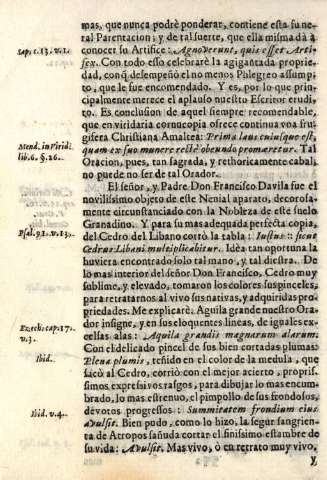 mas, que nunca podrè ponderar, contiene esta su ne-
ral Parentacion; y de tal suerte, que ella misma dà à
Sap. c. 13. v. 1.
conocer su Artifice: Agnoverunt, quis esset Arti-
fex. Con todo esso celebrarè la agigantada proprie-
dad, conq̃ desempeñò el no menos Phlegreo assump-
to, que le fue encomendado. Y es, por lo que prin-
cipalmente merece el aplauso nuestro Escritor erudi-
to. Es conclusion de aquel siempre recomendable,
que en viridaria cornucopia ofrece continua voa fru-
gifera Christiana Amaltea: Prima laus cuiusque est,
Mend. in Virid.
lib. 6. §. 26.
quam ex suo munere rectè obeundo promaretur. Tal
Oracion, pues, tan sagrada, y rethoricamente cabal,
no puede no ser de tal Orador.
El señor, y Padre Don Francisco Davila fue el
novilissimo objeto de este Nenial aparato, decorosa-
mente circunstanciado con la Nobleza de este suelo
Granadino. Y para su mas adequada perfecta copia,
Psal. 91. v. 13.
del Cedro del Libano cortò la tabla: Iustus :: sicut
Cedrus Libani multiplicabitur. Idea tan oportuna la
huviera encontrado solo tal mano, y tal diestra. De
lo mas interior del señor Don Francisco, Cedro muy
sublime, y elevado, tomaron los colores sus pinceles,
para retratarnos al vivo sus nativas, y adquiridas pro-
priedades. Me explicarè. Aguila grande nuestro Ora-
dor insigne, y en sus eloquentes lineas, de iguales ex-
Ezech. cap. 17.
v. 3.
celsas alas: Aquila grandis magnarum alarum.
Con el delicado pincel de sus bien cortadas plumas:
Ibid.
Plena plumis, teñido en el color de la medula, que
sacò al Cedro, corriò con el mejor acierto, propris-
simos expresivos rasgos, para dibujar lo mas encum-
brado, lo mas estrenuo, el pimpollo de sus frondosos,
Ibid. v. 4.
devotos progressos: Summitatem frondium eius
avulsit. Bien pudo, como lo hizo, la segur sangrien-
ta de Atropos sañuda cortar el finissimo estambre de
su vida: Avulsit. Mas vivo, ò en retrato muy vivo,
y